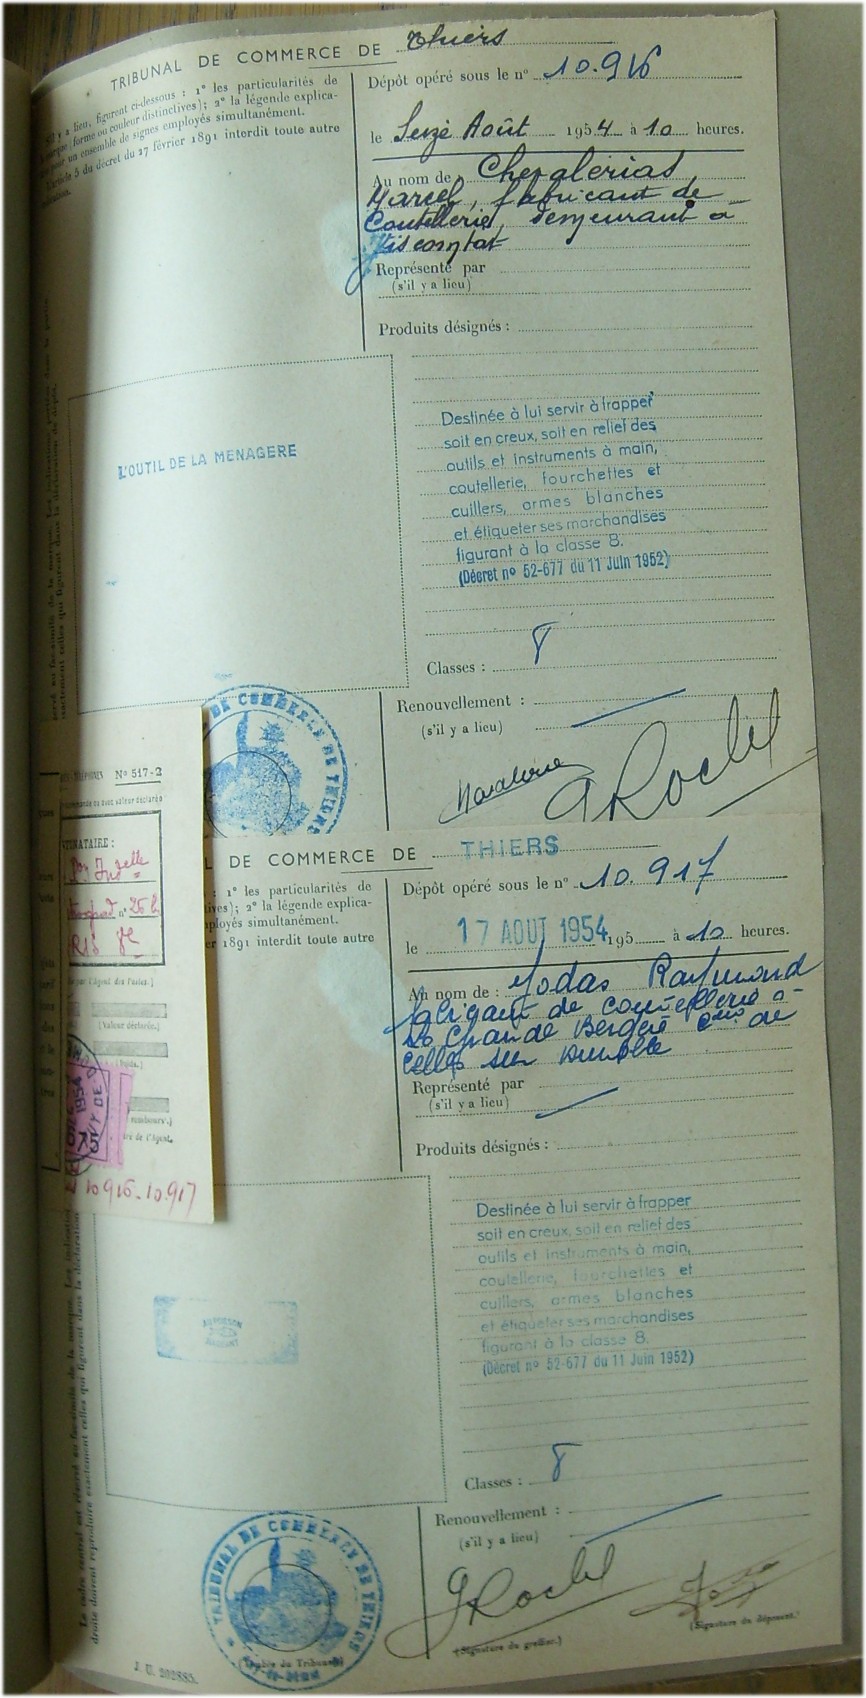 TRIBUNAL DE COMMERCE DE Thiers
S'il y a lieu, figurent ci-dessous : 1° les particularités de
marque (forme ou couleur distinctives); 2° la légende explica-
pour un ensemble de signes employés simultanément.
L'article 5 du décret du 27 février 1891 interdit toute autre
Dépôt opéré sous le n° 10.916
le Seize Août 1954 à 10 heures.
Au nom de : Chevalérias,
Marcel, fabricant de
Coutellerie, demeurant à
Viscomtat
Représenté par
(s'il y a lieu)
Produits désignés :
L'OUTIL DE LA MENAGERE
Destinée à lui servir à frapper
soit en creux, soit en relief des
outils et instruments à main,
coutellerie, fourchettes et
cuillers, armes blanches
et étiqueter ses marchandises
figurant à la classe 8.
(Décret n° 52-677 du 11 Juin 1952)
Classes : 8
Renouvellement :
(s'il y a lieu)
DE COMMERCE DE THIERS
GRochel
N° 517-2
ou avec valeur déclarée
NATAIRE :
n° 26 b
(Valeur déclarée.)
de l'Agent.
1954
10916-10.917
L DE COMMERCE DE THIERS
: 1° les particularités de
tives); 2° la légende explica-
ployés simultanément.
er 1891 interdit toute autre
Dépôt opéré sous le n° 10.917
le 17 AOUT 1954 195 à 10 heures.
Au nom de : Raymond
fabricant de coutellerie à
Celles sur Durolle
Représenté par
(s'il y a lieu)
Produits désignés :
Destinée à lui servir à frapper
soit en creux, soit en relief des
outils et instruments à main,
coutellerie, fourchettes et
cuillers, armes blanches
et étiqueter ses marchandises
figurant à la classe 8.
(Décret n° 52-677 du 11 Juin 1952)
Classes : 8
Renouvellement :
(s'il y a lieu)
TRIBUNAL DE COMMERCE DE THIERS
GRochel
(Signature du greffier.)
(Signature du déposant.)
(Timbre du Tribunal)
Le cadre central est réservé au fac-similé de la marque. Les indications
droite doivent reproduire exactement celles qui figurent dans la déclaration
J. U. 202885.